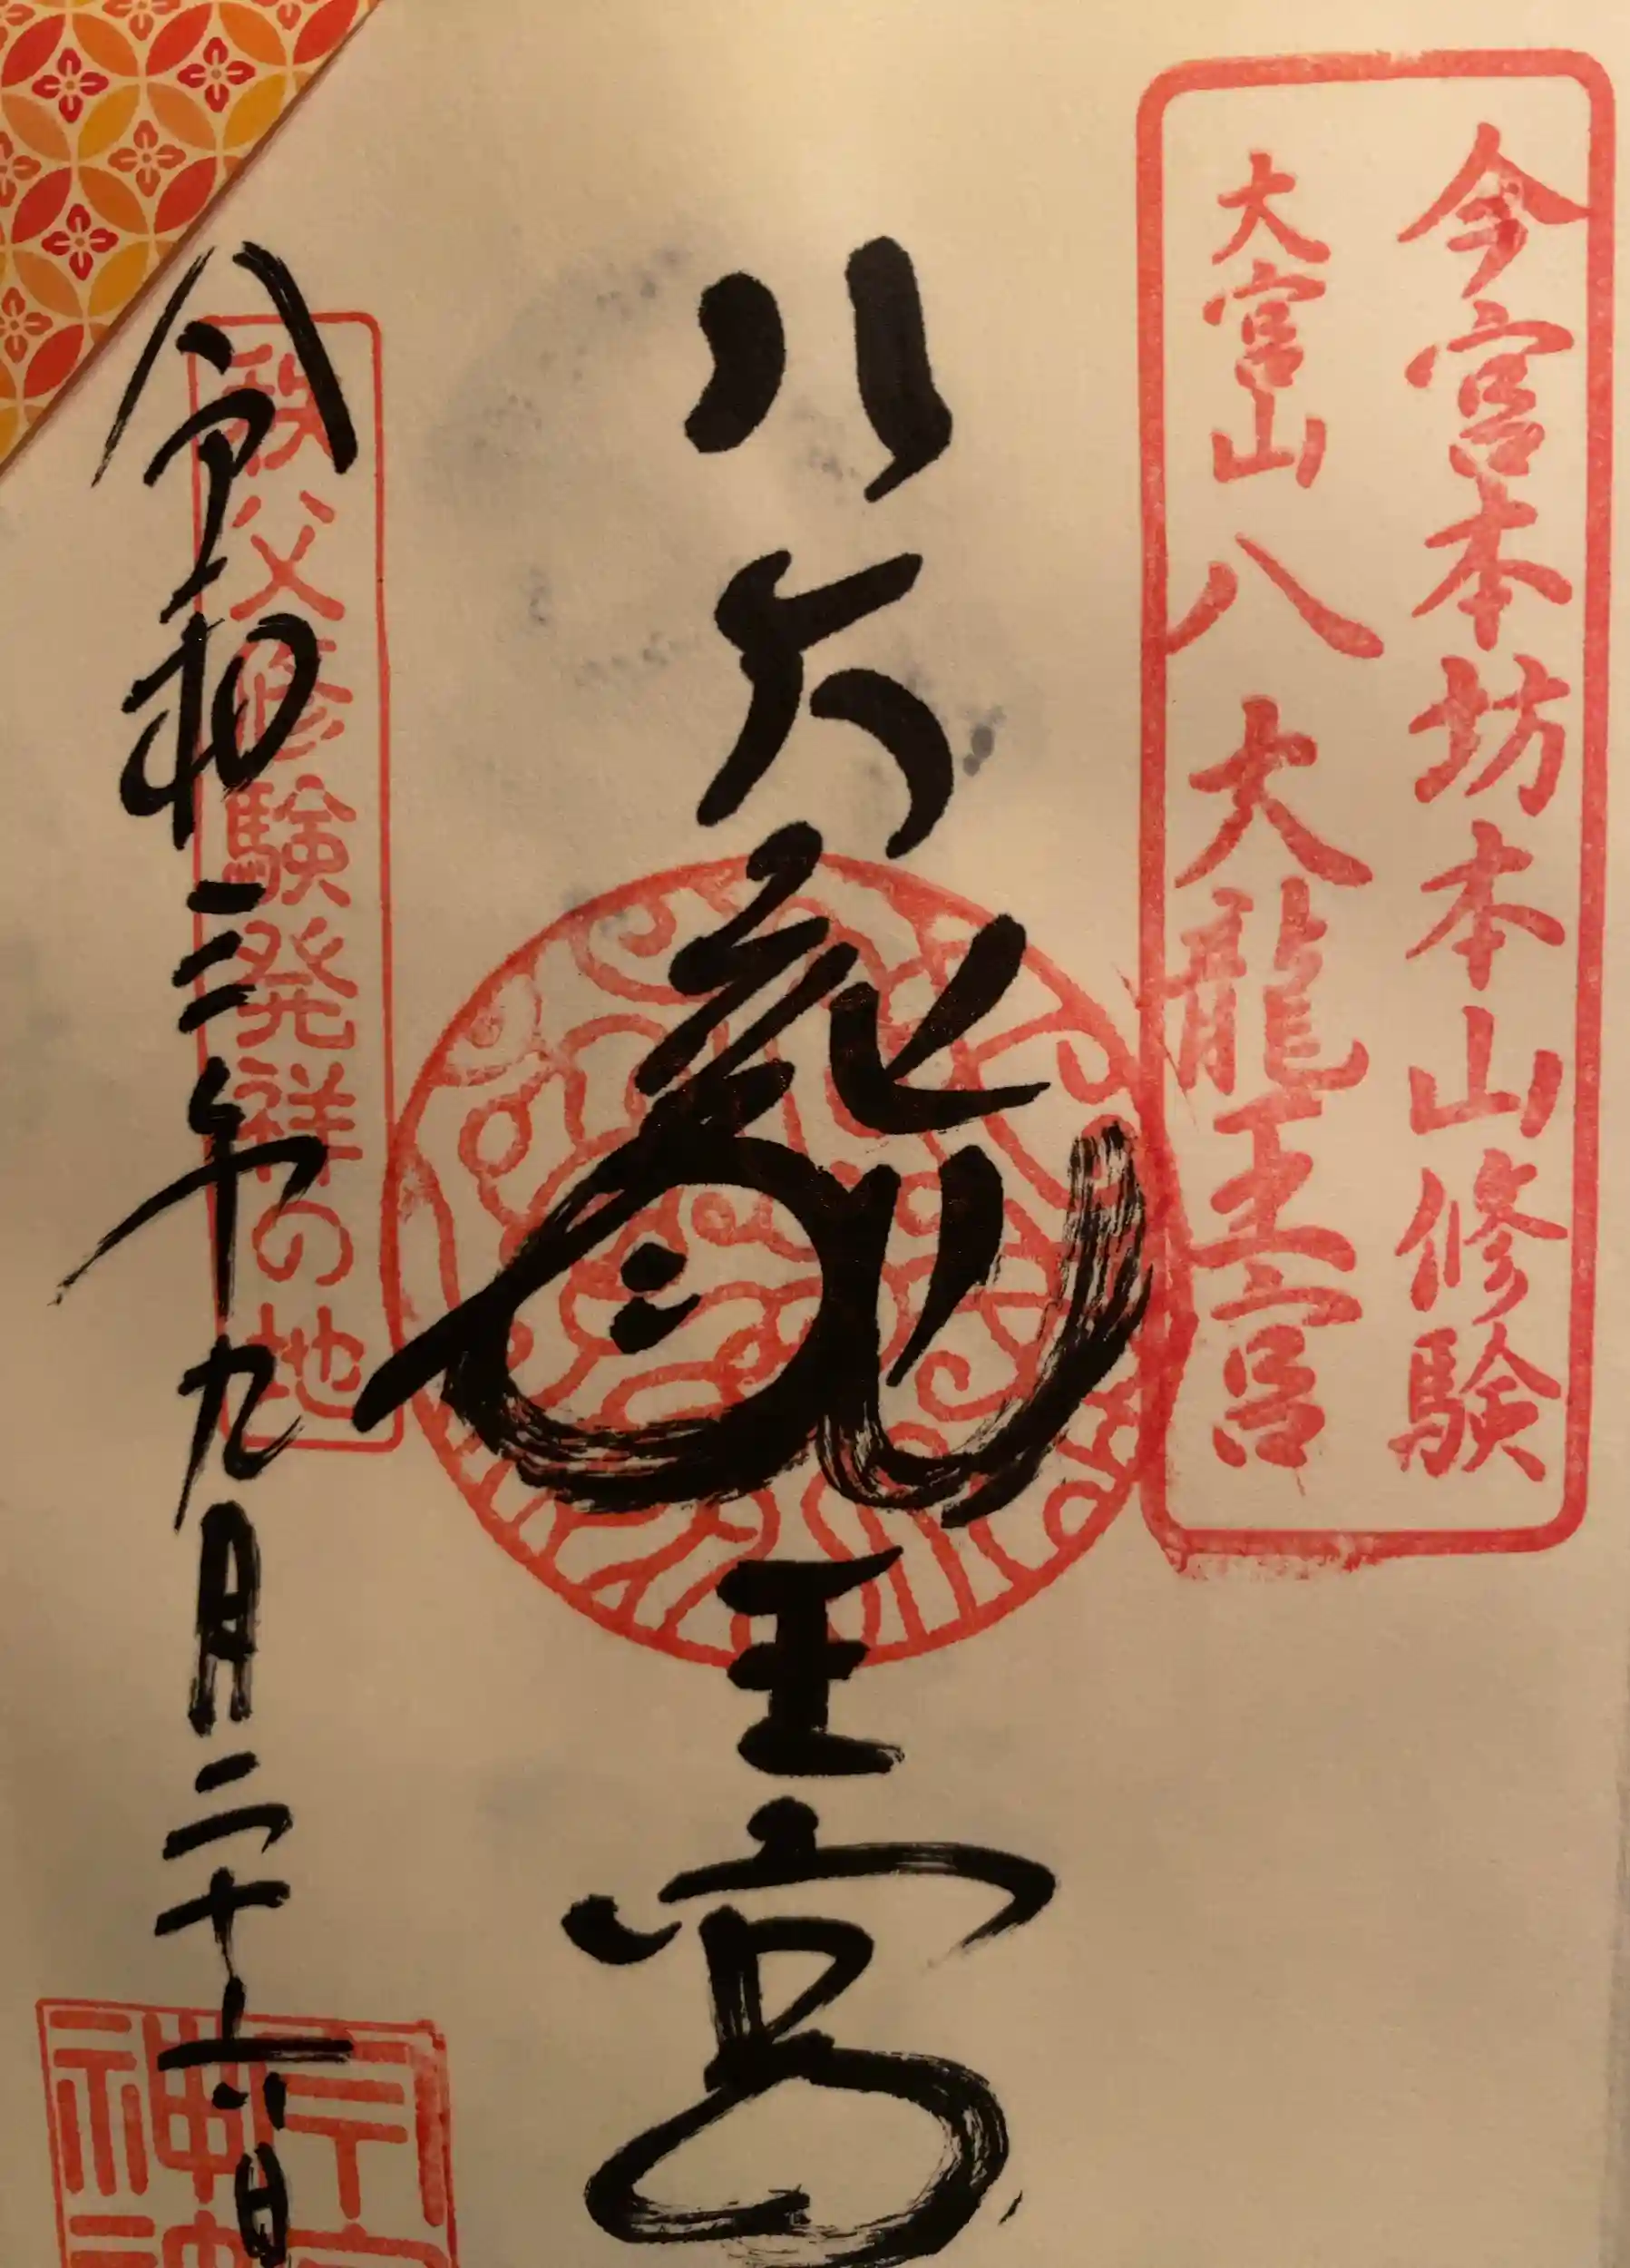 今宮本坊本山修験
大宮山八大龍王宮
八大龍王宮
秩父修験発祥の地
令和三年九月二十六日